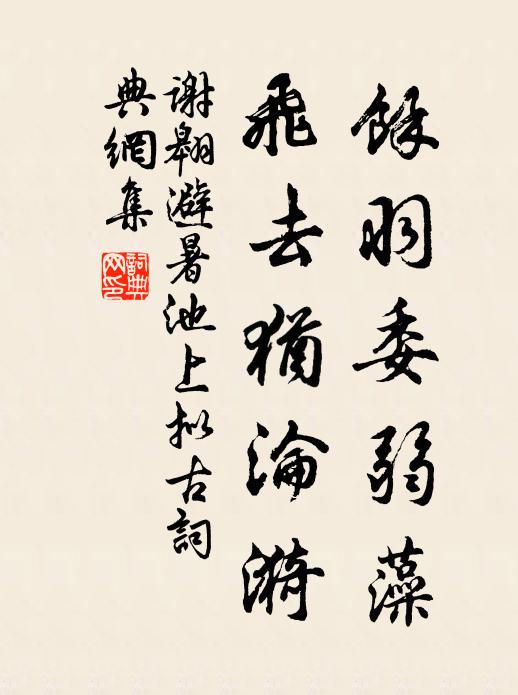 餘羽委弱藻
飛去猶淪漪
謝翱避暑池上拟古詞
典網集
詞典网印